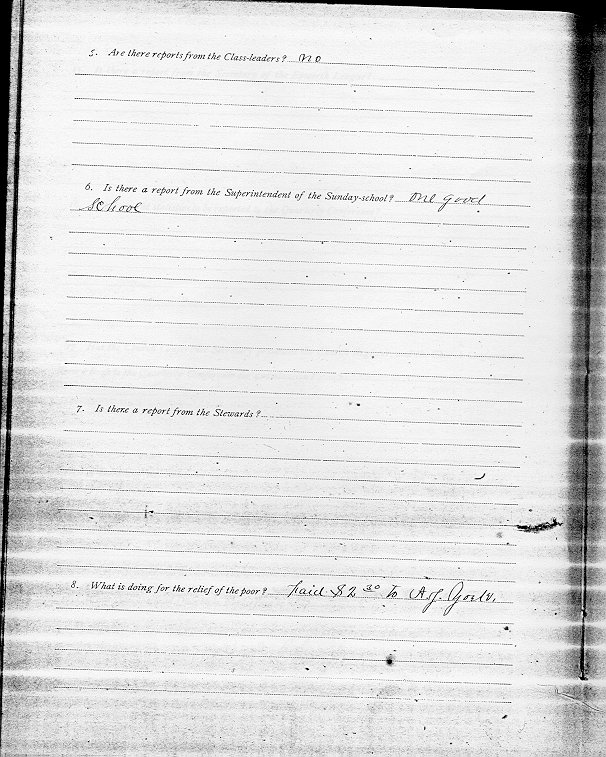 5. Are there reports from the Class-leaders? No
6. Is there a report from the Superintendent of the Sunday-school? One good
School
7. Is there a report from the Stewards?
8. What is doing for the relief of the poor? Paid $2 30 To A. J.